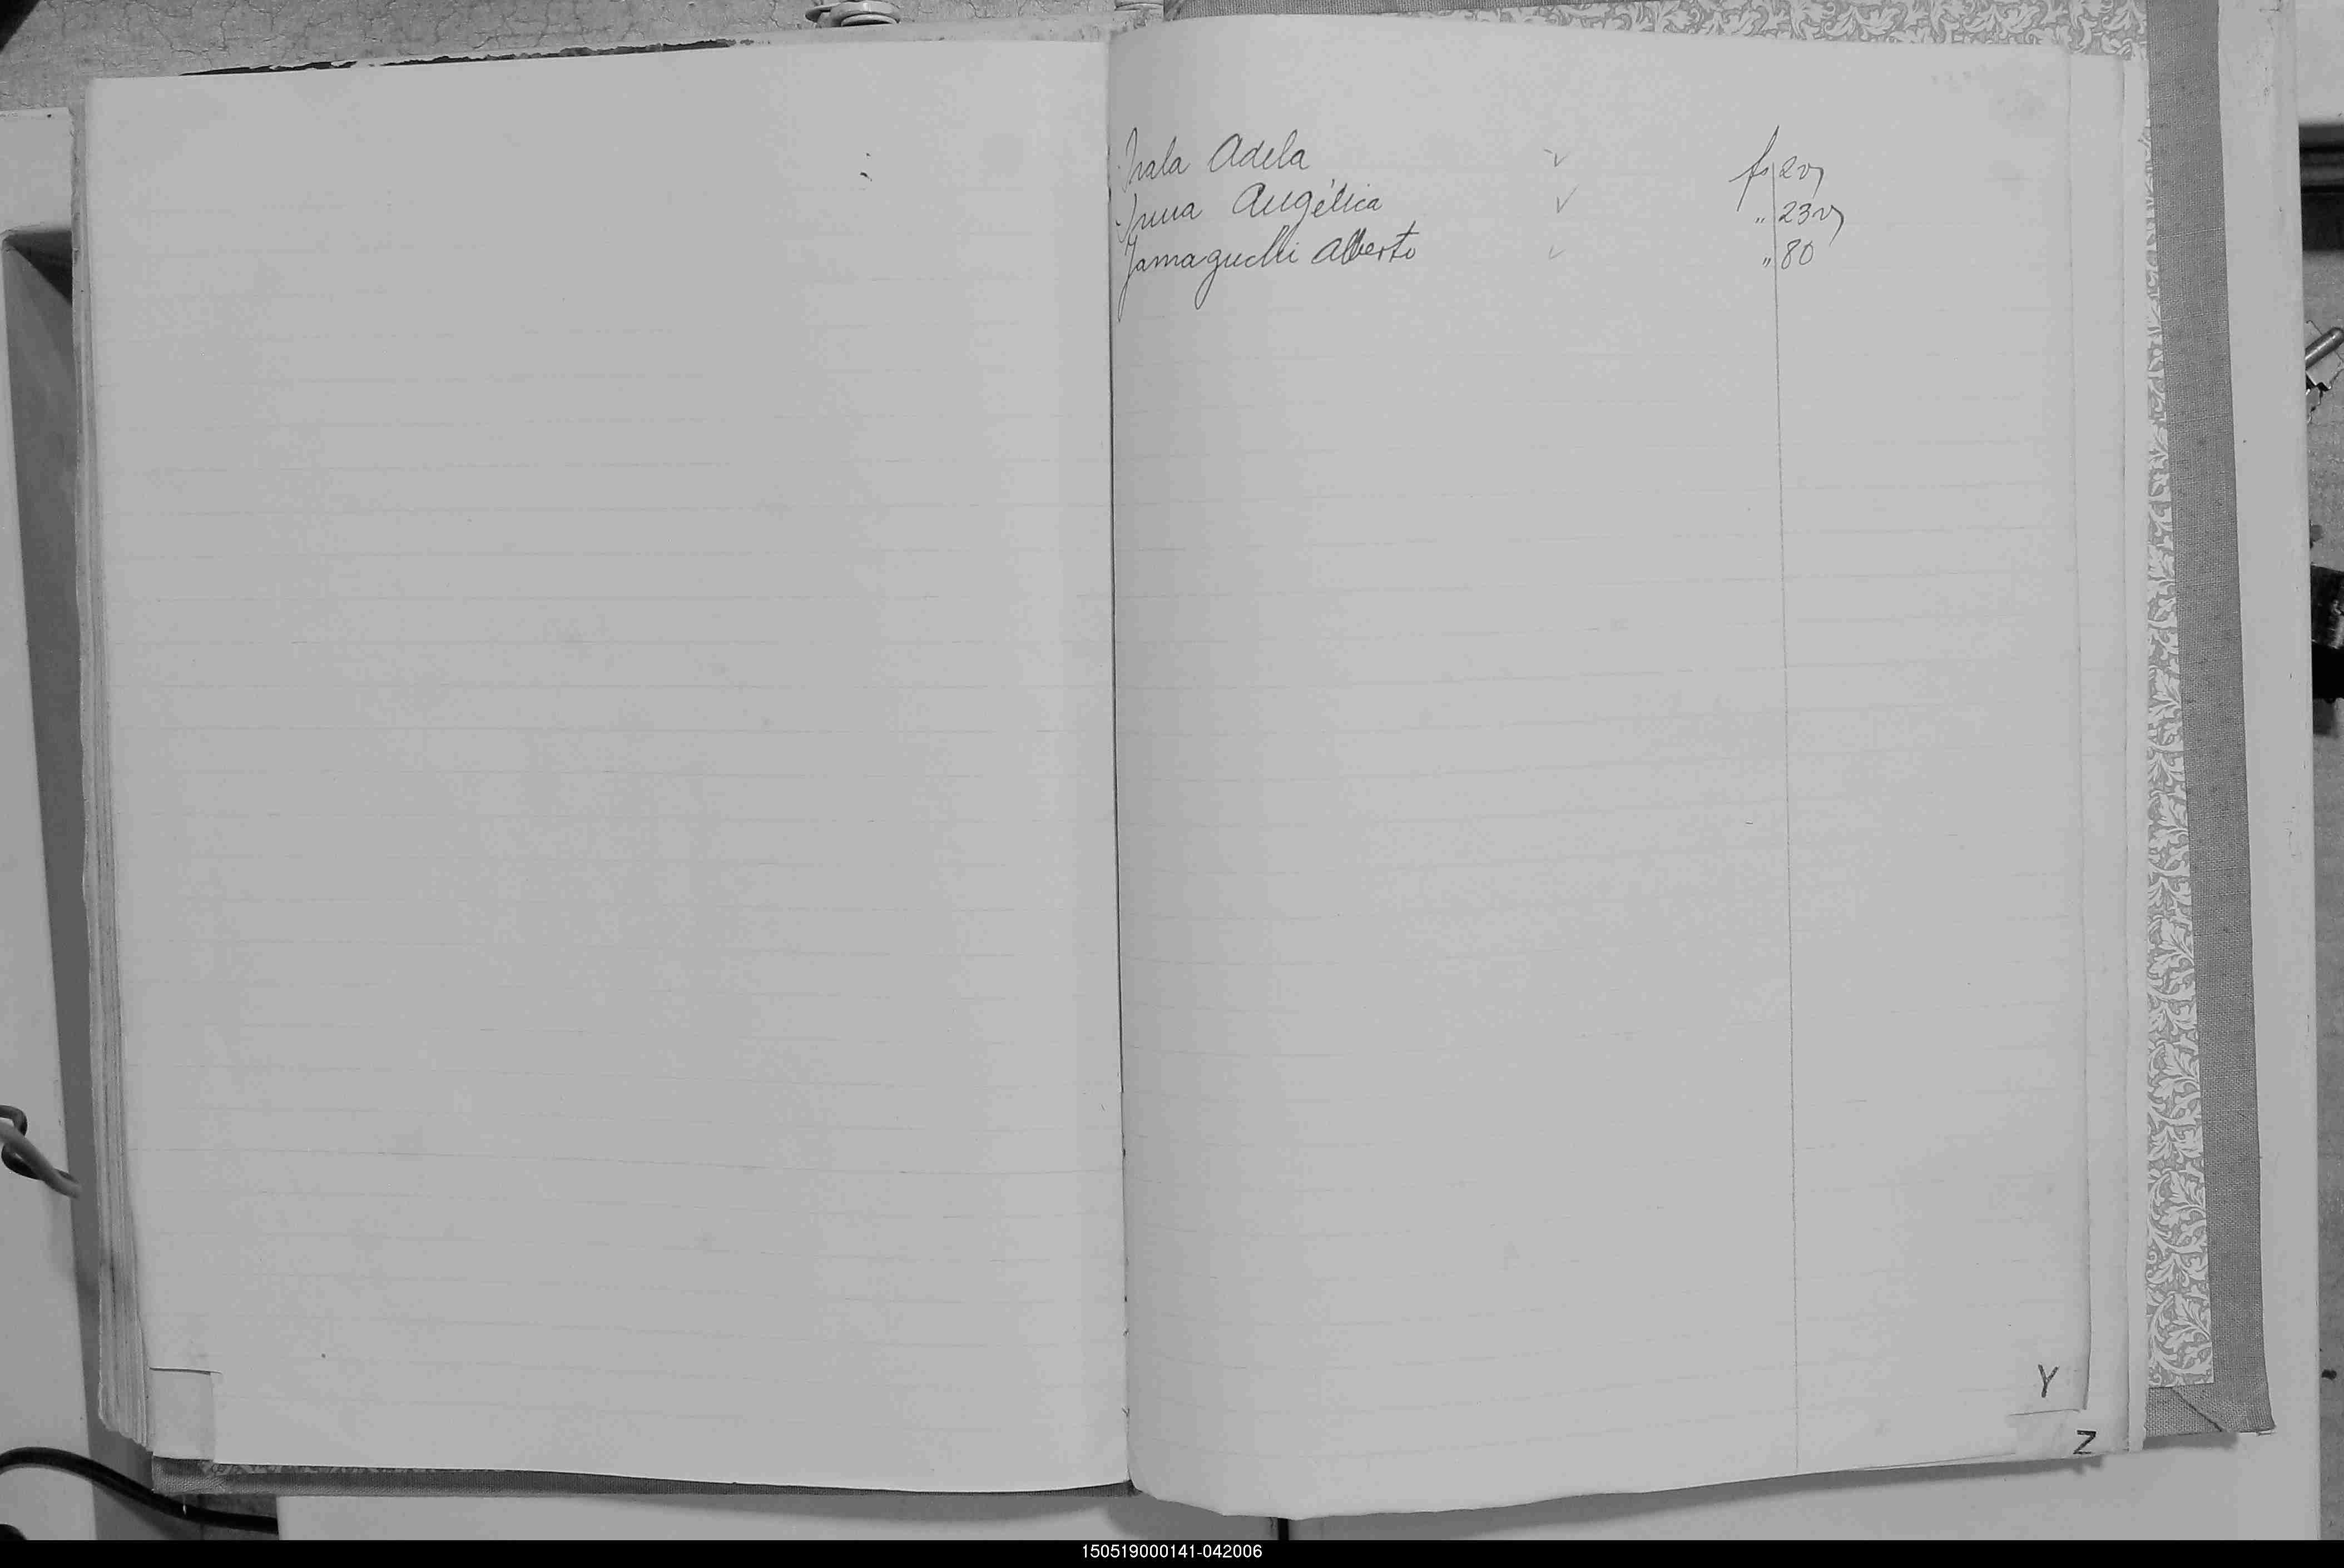 Yrala Adela ✓ fs 2v
Yrua Angélica ✓ " 23v
Yamaguchi Alberto ✓ " 80
Y
Z
150519000141-042006